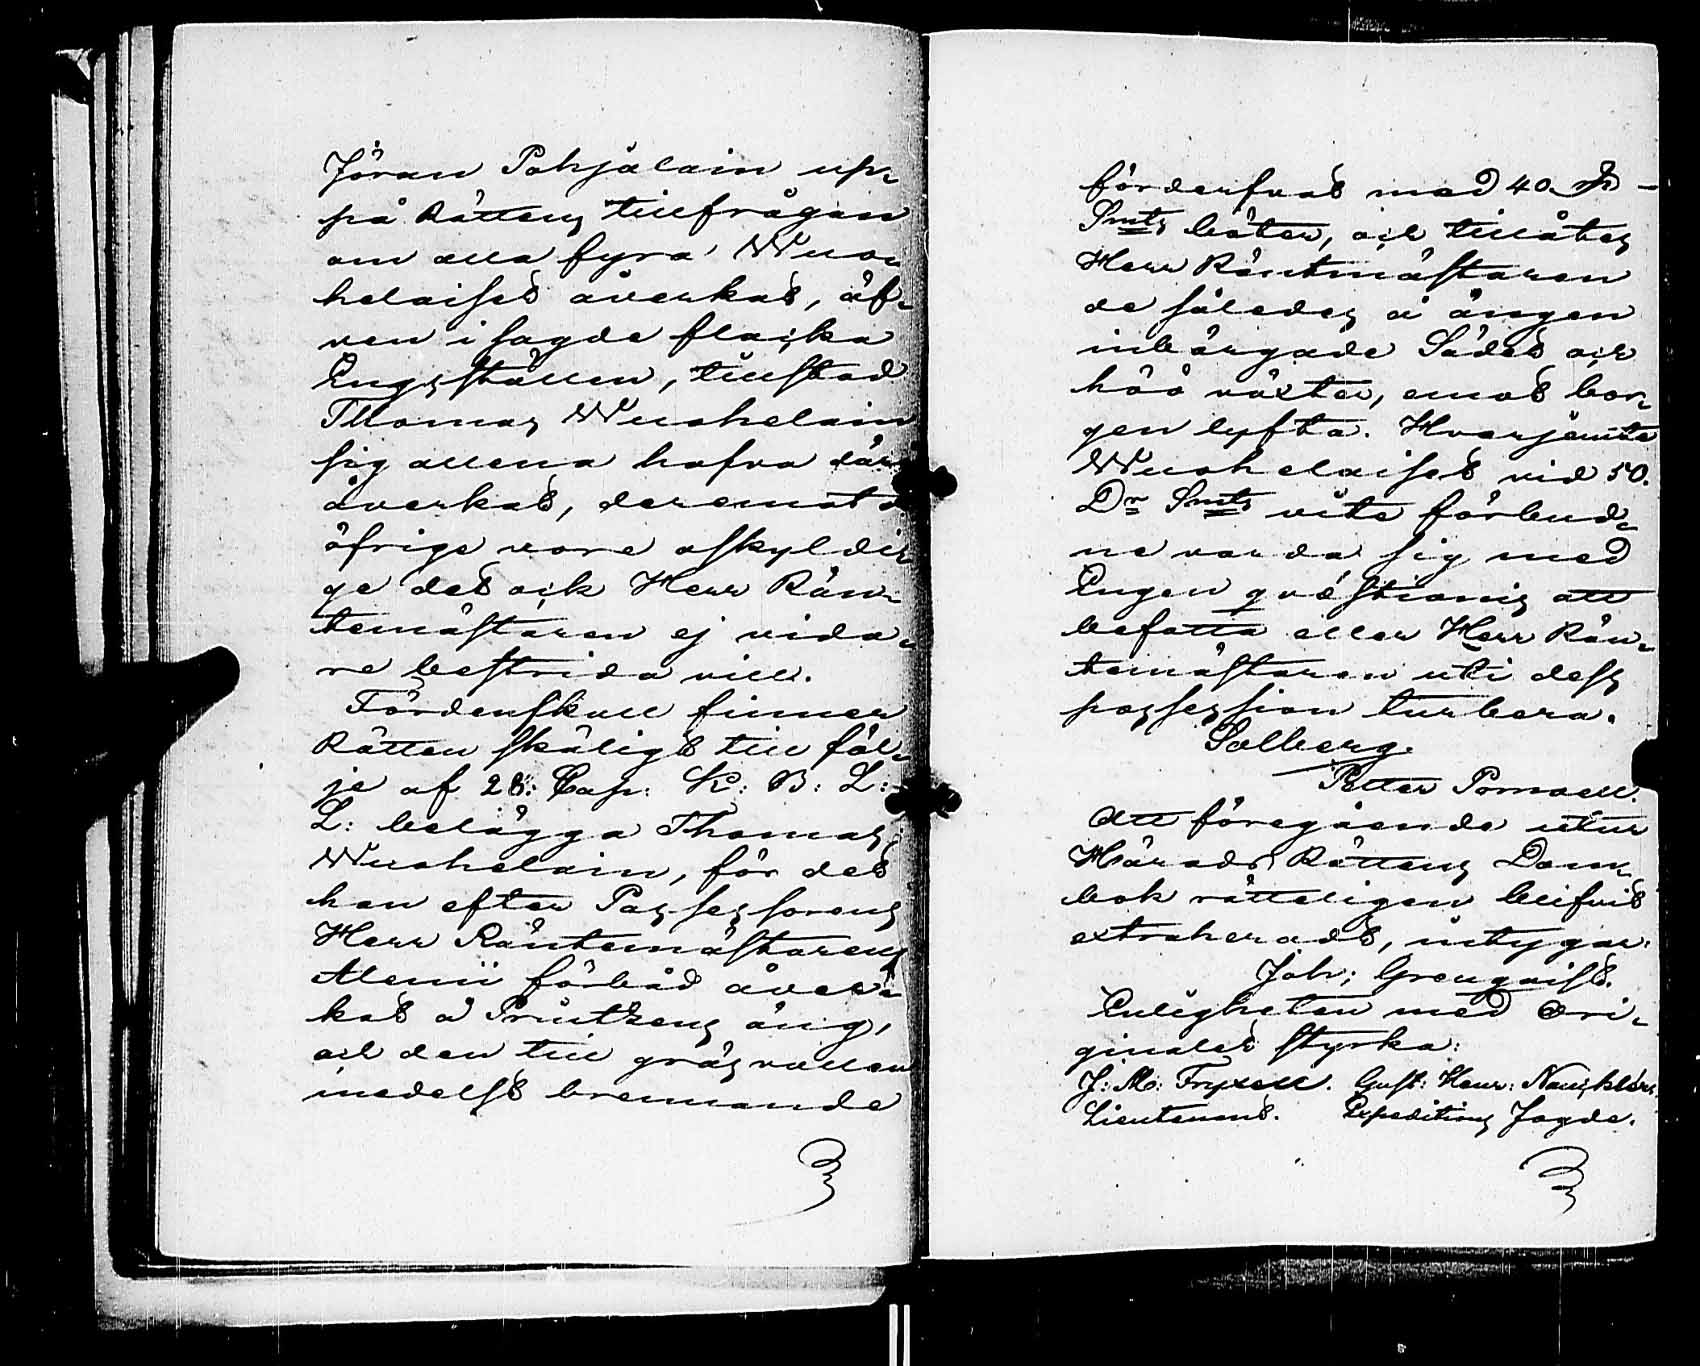 Jöran Pohjalain up-
på Rättens tillfrågan
om alla fyra Wuo-
helaised åverkat, äf-
ven i sagde flacka
Engsställen, tillstod
Thomas Wuohelain
sig allena hafva där
åverkat, deremot de
öfrige vore oskyldi-
ge det ock Herr Rän-
temästaren ej vida-
re bestrida vill.
Fördenskull finner
Rätten skäligt till föl-
je af 28: Cap: K: B: L:
L: belägga Thomas
Wuohelain, för det
han efter Possessorens
Herr Räntemästarens
Menii förbud åver-
kat å Printzens äng,
och den till gräsvallen
medelst brennande
förderfvat med 40 –
Smts böter, och tillåtes
Herr Räntmästaren
de således å ängen
inbärgade Sädes och
höö växter, emot bor-
gen lyfta. Hvarjemte
Wuohelaised vid 50.
Dr Smts vite förbud-
ne varda sig med
Engen qvæstionis att
befatta eller Herr Rän-
temästaren uti dess
possession turbera.
Salberg.
Petter Pornoell.
Att föregående utur
Härads Rättens Dom-
bok rätteligen blifvit
extraheradt, intygar.
Joh; Grenqvist.
Enligheten med Ori-
ginalet styrka:
J: M: Fryxell. Gust: Henr: Naucklér
Lieutenant. Expeditions Fogde.